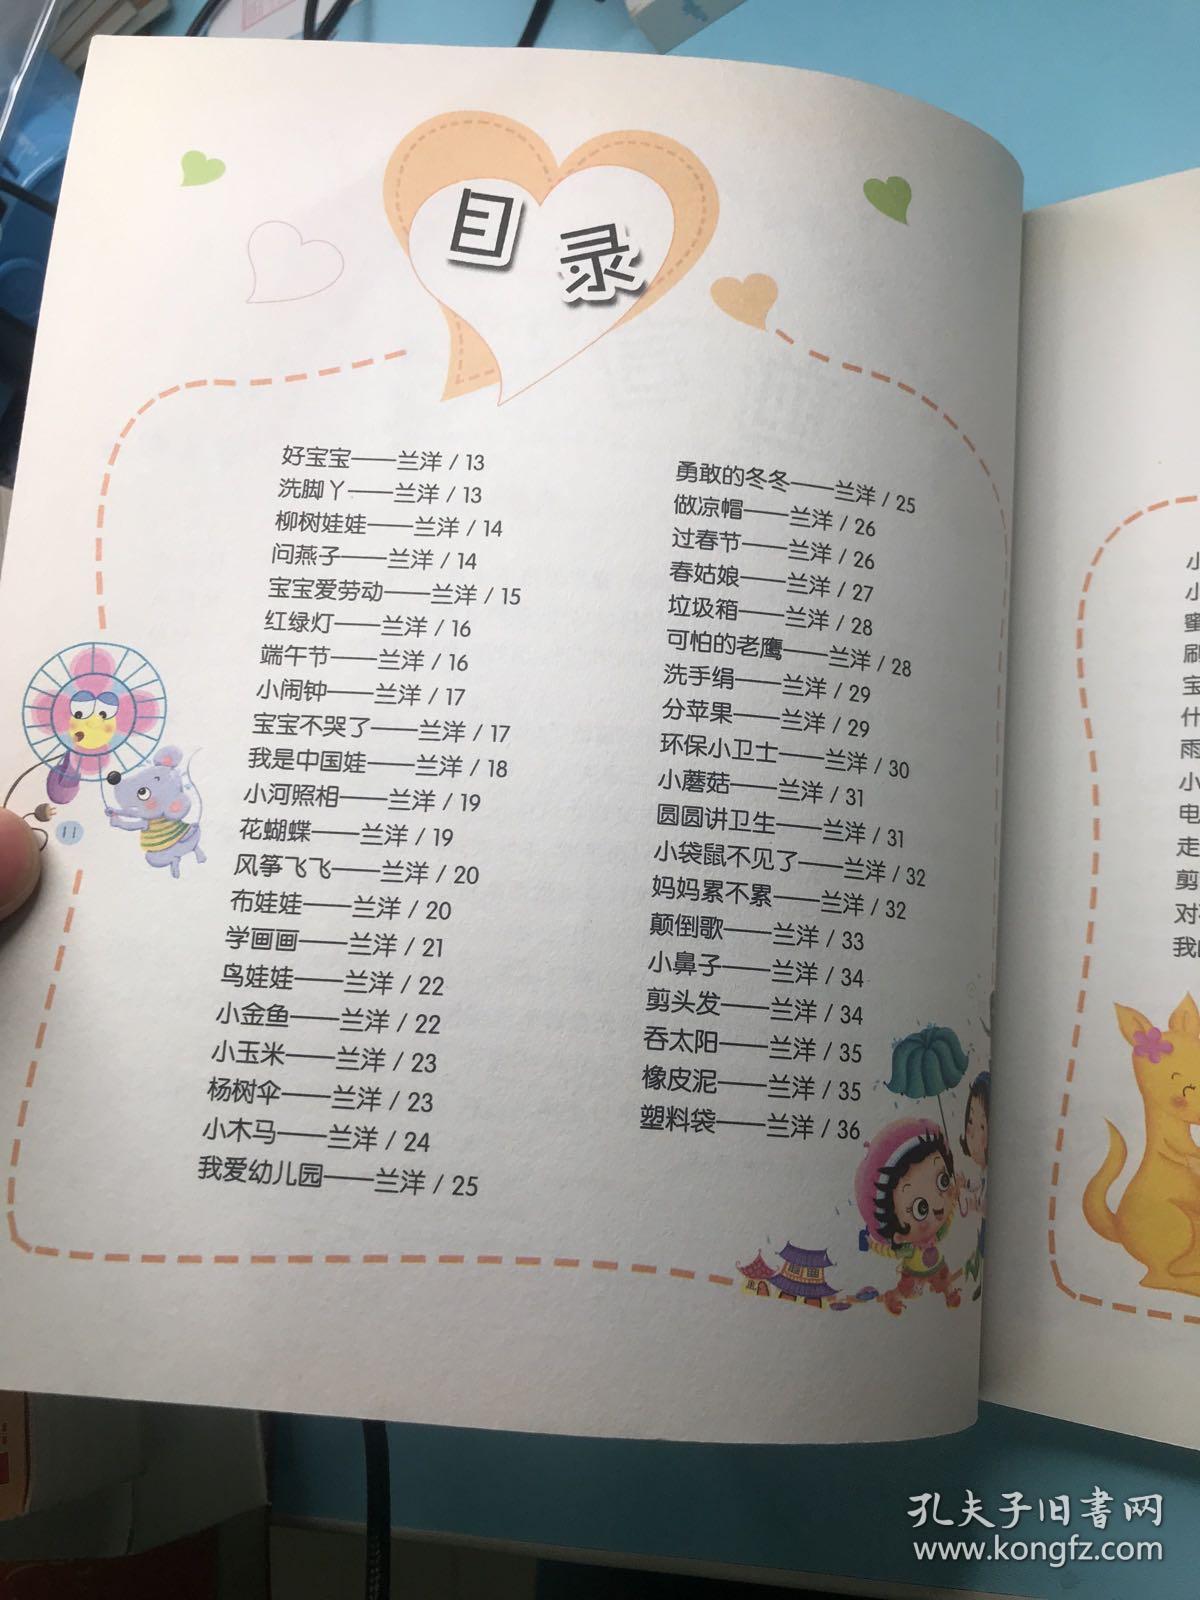 目录
好宝宝——兰洋 / 13
洗脚丫——兰洋 / 13
柳树娃娃——兰洋 / 14
问燕子——兰洋 / 14
宝宝爱劳动——兰洋 / 15
红绿灯——兰洋 / 16
端午节——兰洋 / 16
小闹钟——兰洋 / 17
宝宝不哭了——兰洋 / 17
我是中国娃——兰洋 / 18
小河照相——兰洋 / 19
花蝴蝶——兰洋 / 19
风筝飞飞——兰洋 / 20
布娃娃——兰洋 / 20
学画画——兰洋 / 21
鸟娃娃——兰洋 / 22
小金鱼——兰洋 / 22
小玉米——兰洋 / 23
杨树伞——兰洋 / 23
小木马——兰洋 / 24
我爱幼儿园——兰洋 / 25
勇敢的冬冬——兰洋 / 25
做凉帽——兰洋 / 26
过春节——兰洋 / 26
春姑娘——兰洋 / 27
垃圾箱——兰洋 / 28
可怕的老鹰——兰洋 / 28
洗手绢——兰洋 / 29
分苹果——兰洋 / 29
环保小卫士——兰洋 / 30
小蘑菇——兰洋 / 31
圆圆讲卫生——兰洋 / 31
小袋鼠不见了——兰洋 / 32
妈妈累不累——兰洋 / 32
颠倒歌——兰洋 / 33
小鼻子——兰洋 / 34
剪头发——兰洋 / 34
吞太阳——兰洋 / 35
橡皮泥——兰洋 / 35
塑料袋——兰洋 / 36
11
小
小
蜜
刷
宝
什
雨
小
电
走
剪
对
我
孔夫子旧書网
www.kongfz.com